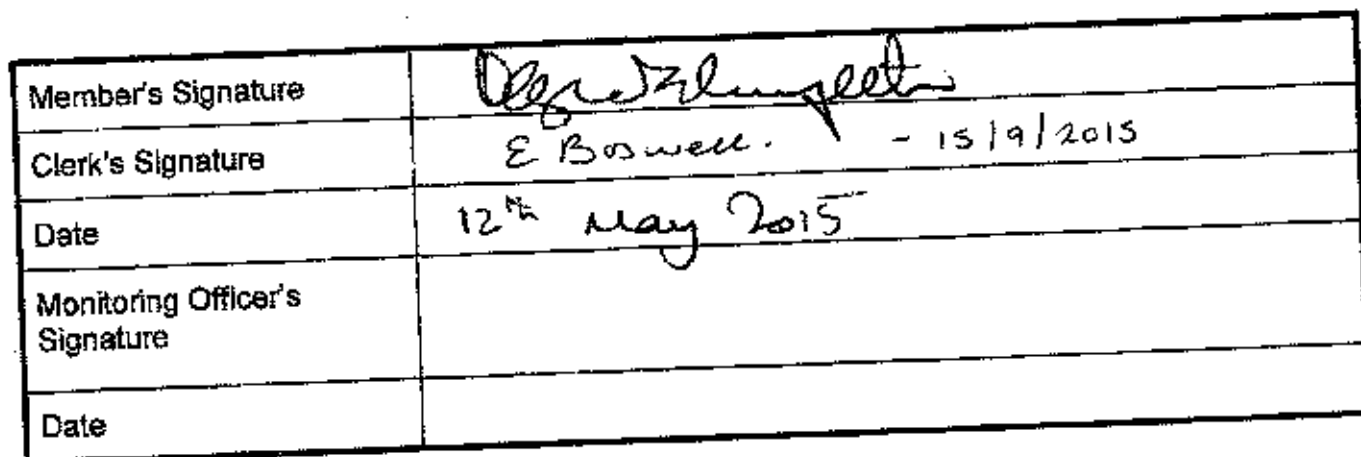 Member's Signature
Clerk's Signature E Boswell. - 15/9/2015
Date 12th May 2015
Monitoring Officer's
Signature
Date